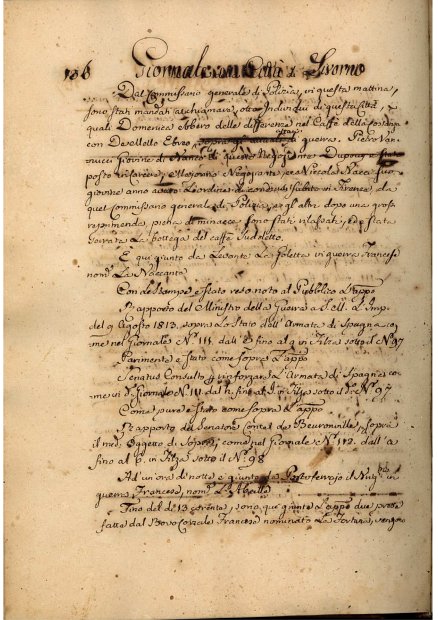 Giornale Città e Livorno
Dal Commissario generale di Polizia, in questa mattina,
sono stati mandati a chiamare, otto Individui di questa Città,
quali Domenica ebbero delle differenze nel Caffè della
con De Ebreo, guerra. Pietro Van
giovine di Franco di questo Negoziante Dupouy è stato
posto in Carcere, e Negoziante, era Niccola suo
giovine anno subito in Firenze, da
quel Commissario generale di Polizia, e gl'altri dopo una grossa
reprimenda, piena di minacce, sono stati rilasciati, ed è stata
serrata La bottega del caffè sudetto.
È qui giunto da Levante La Goletta in guerra Francese
nom.ta La
Con le Stampe è stato reso noto al Pubblico L'app.o
Rapporto del Ministro della Guerra a S. M. L'Imp.
del 9 Agosto 1813, sopra Lo Stato dell'Armata di Spagna co
me nel Giornale N.° 111, dall' e fino al g in Filza sotto il N.° 97
Parimente è stato come sopra L'app.o
Senatus Consulto p rinforzare L'Armata di Spagna co
me v.i d.o Giornale N.° 111 dal h fino al in Filza sotto il d.o N.° 97
Come pure è stato come sopra L'app.o
Rapporto del Senatore Conte de Beurnonville, sopra
il med.o Oggetto di Sopra, come nel giornale N.° 112 dall' a
fino al p. in Filza sotto il N.° 98
Ad un'ora di notte è giunto da Portoferrajo il in
guerra Francese, nom.to L'Abeille
Fino del dì 13 corente, sono qui giunte L'app.e due prese
fatte dal Bovo Corsale Francese nominato La Fortuna, vengono